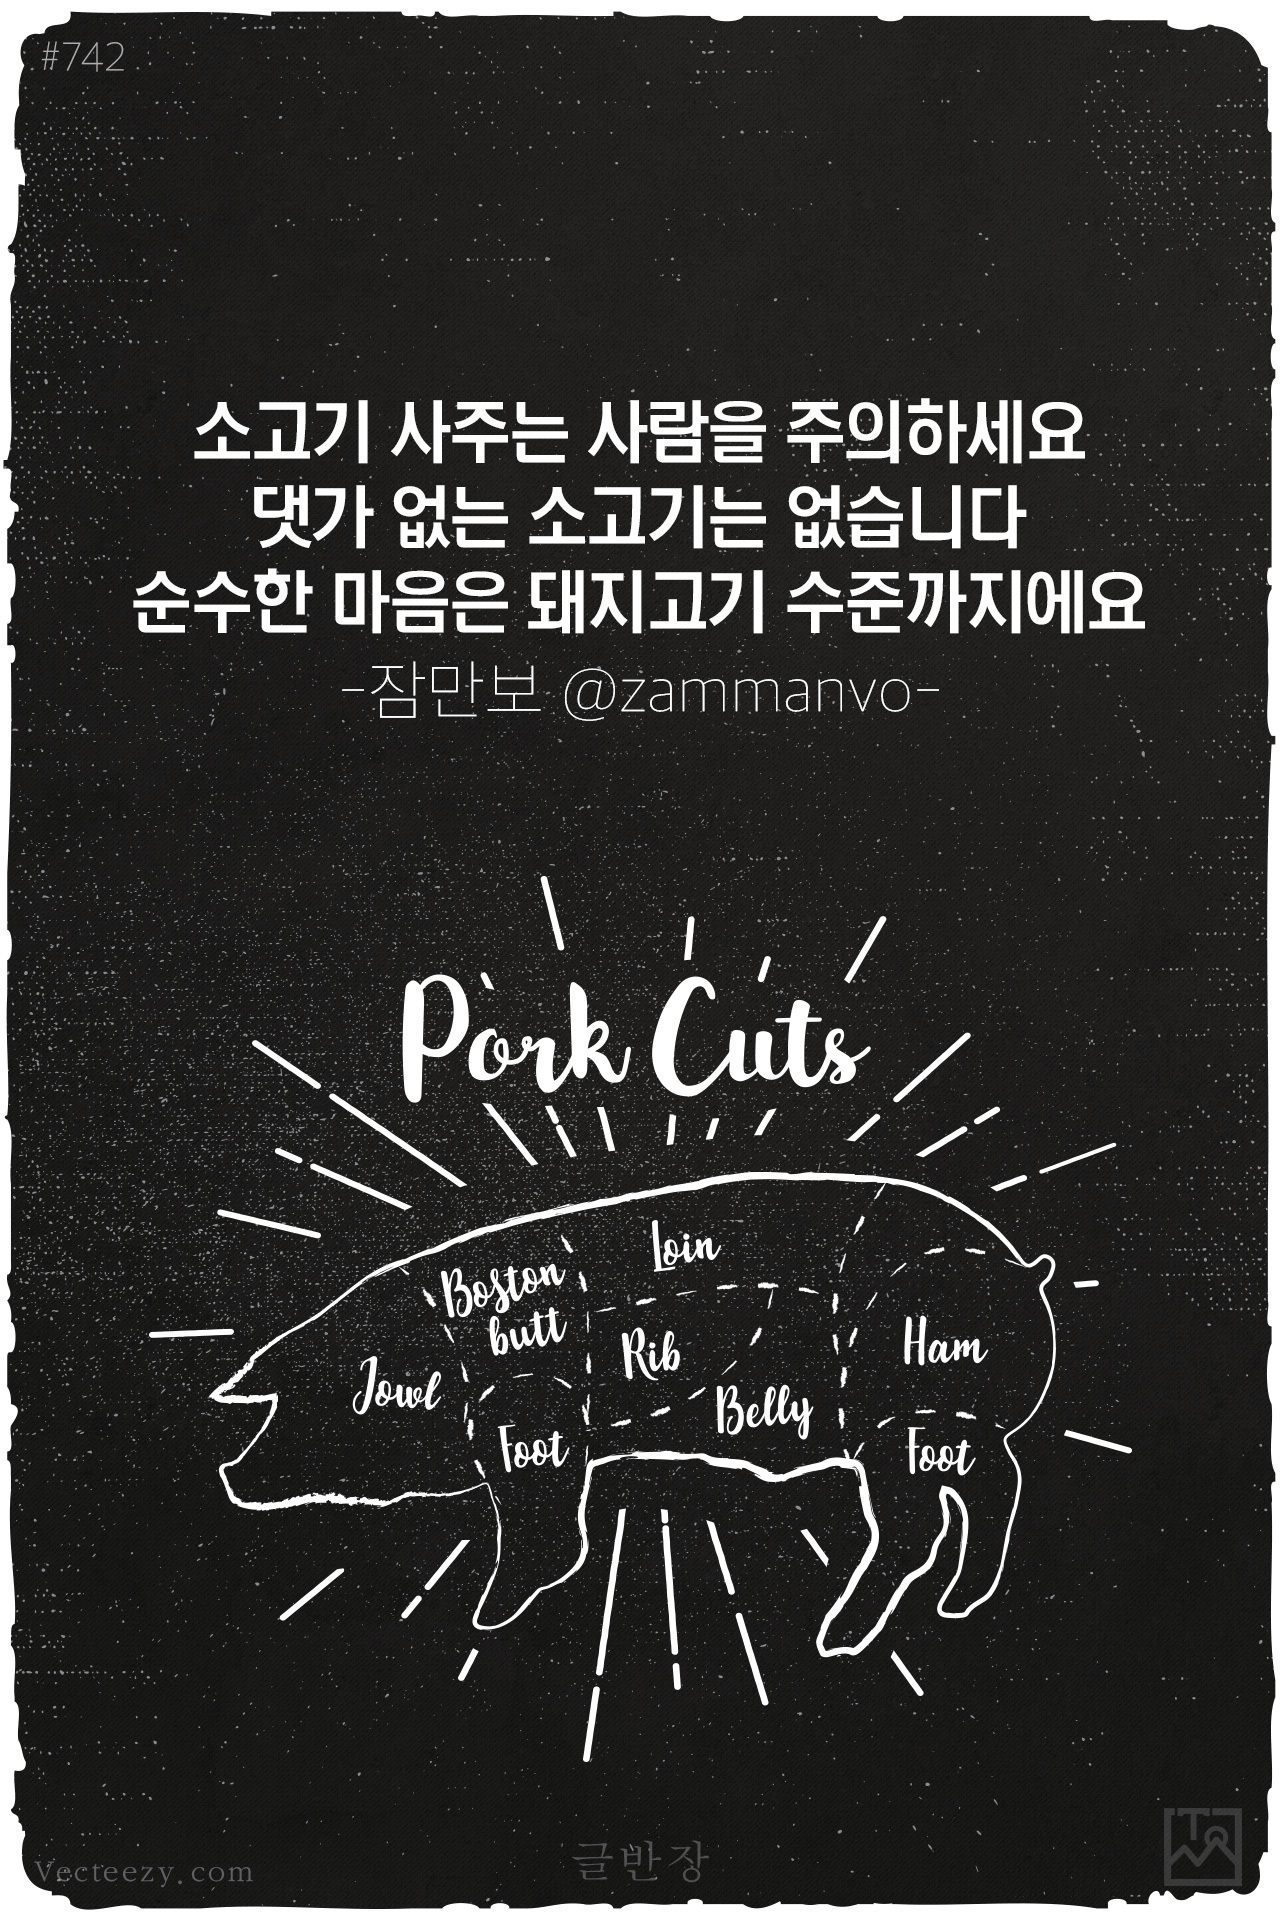 #742
소고기 사주는 사람을 주의하세요
댓가 없는 소고기는 없습니다
순수한 마음은 돼지고기 수준까지에요
-잠만보 @zammanvo-
Pork Cuts
Loin
Boston
butt
Rib
Ham
Jowl
Belly
Foot
Foot
Vecteezy.com
글반장